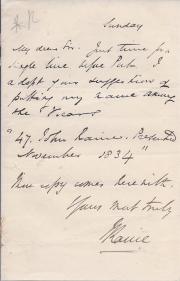 Sunday
My dear Sir. Just time for
single line before Post. I
adopt your suggestion of
putting my name among
the Vicars
"47. John Raine. Presented
November 1834"
copy comes herewith.
Yours most truly
JRaine